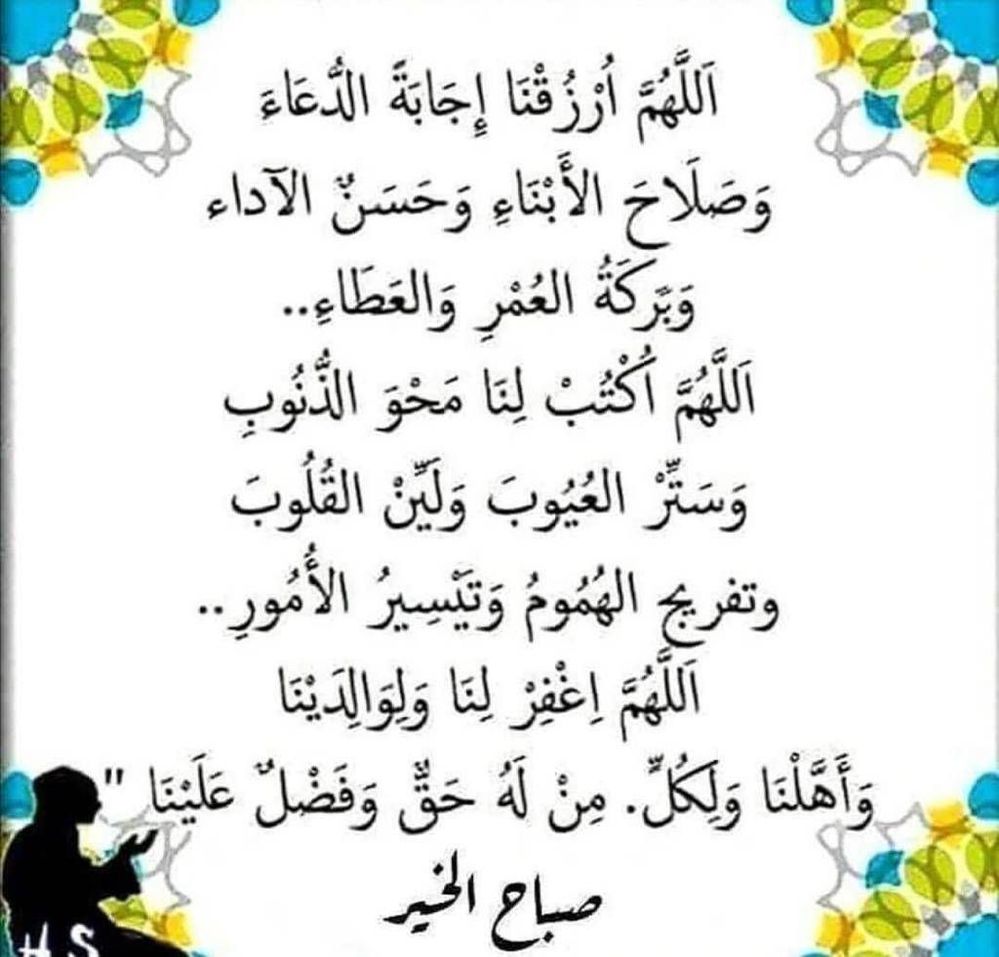 اَللَّهُمَّ اُرْزُقْنَا إِجَابَةً الدُّعَاءَ
وَصَلَاحَ الأَبْنَاءِ وَحَسَنٌ الآداء
وَبَرَكَةُ العُمْرِ وَالعَطَاءِ..
اَللَّهُمَّ اُكْتُبْ لِنَا مَحْوَ الذُّنُوبِ
وَسَتِّرْ العُيُوبَ وَلَيِّنْ القُلُوبَ
وتفريج الهُمُومُ وَتَيْسِيرُ الأُمُورِ..
اَللَّهُمَّ اِغْفِرْ لِنَا وَلِوَالِدَيْنَا
وَأَهَّلْنَا وَلِكُلِّ. مِنْ لَهُ حَقٌّ وَفَضْلٌ عَلَيْنَا "
صباح الخير
H S